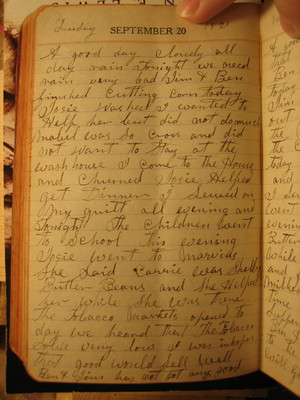 Tuesday
SEPTEMBER 20
A good day Cloudy all
day rain tonight we need
rain very bad Jim & Ben
finished Cutting Corn today
Josie Washed I wanted to
Help her but did not do much
Mabel was So Cross and did
not Want to Stay at the
wash house I Come to the House
and Churned Josie Helped
get Dinner I Sewed on
My quilt all evening and
Tonight The Children Went
to School This evening
Josie went to
She Said Carrie was Shelling
Butter Beans and She Helped
her While She was There
The Tobacco Markets opened to
day we heard that The Tobacco
Sold very low I was in hopes
That good would Sell Well
Ben & Jims has not got any good